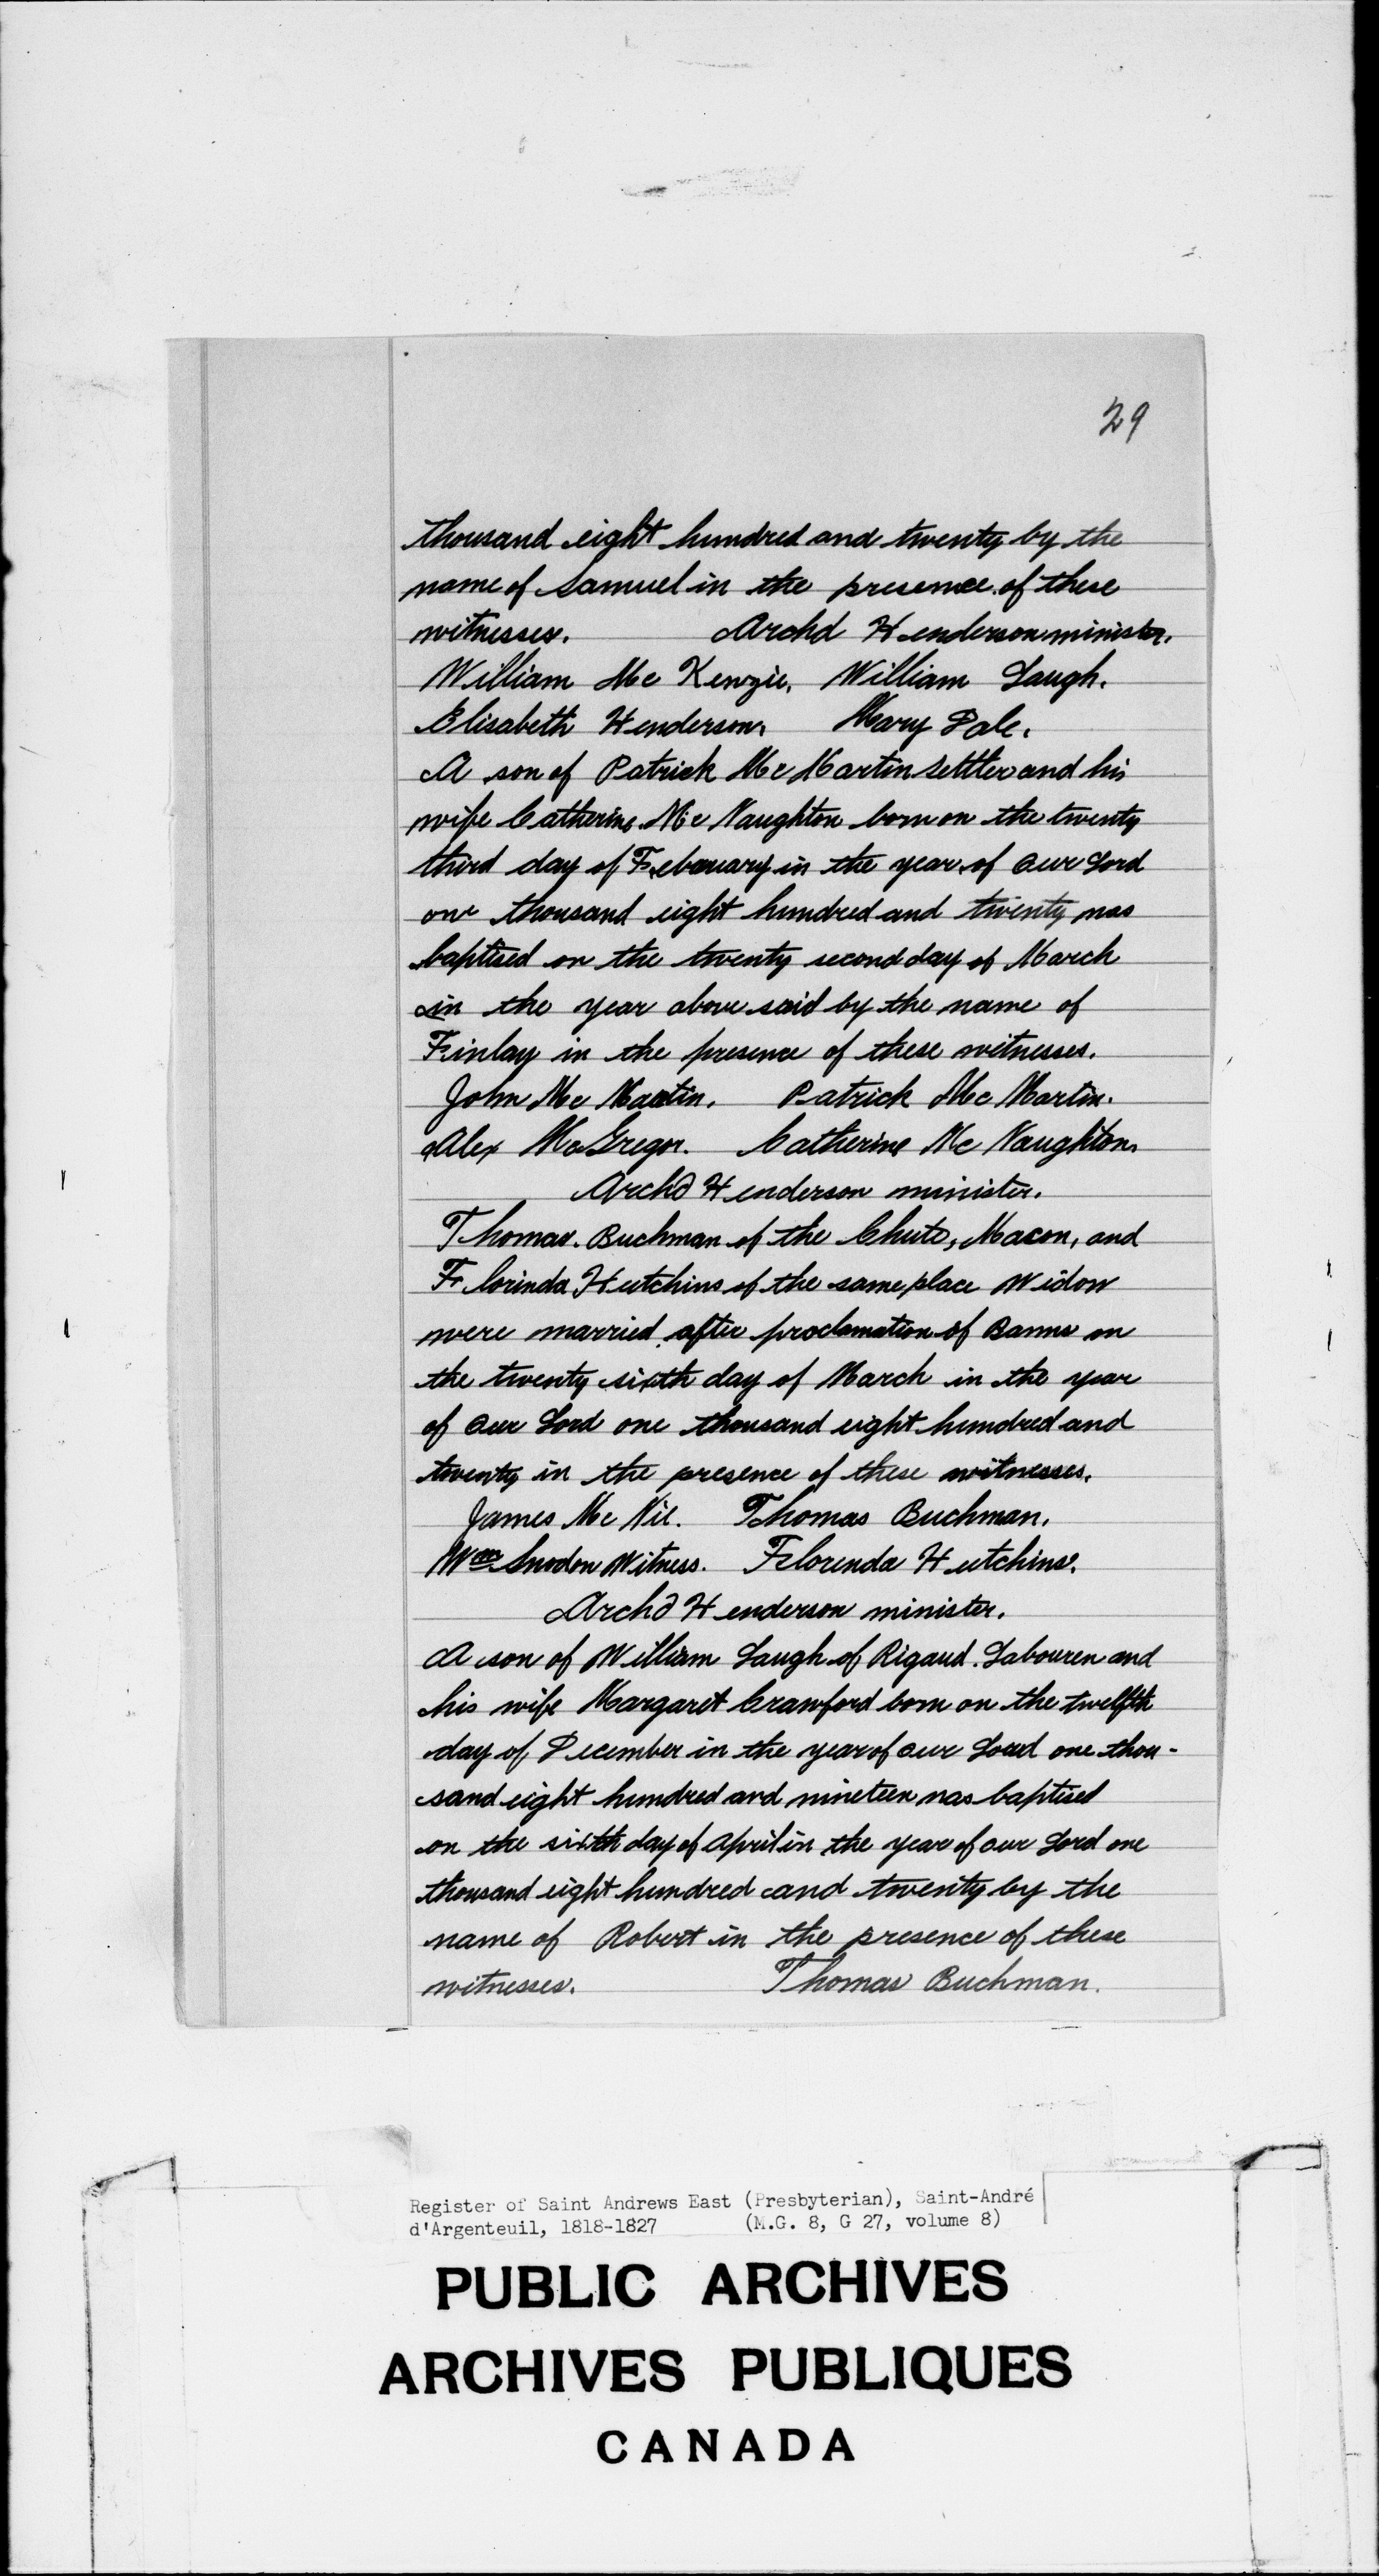 29
thousand eight hundred and twenty by the
name of Samuel in the presence of these
witnesses. Archd Henderson minister.
William Mc Kenzie. William Laugh.
Elisabeth Henderson. Mary Dale.
A son of Patrick Mc Martin settler and his
wife Catherine Mc Naughton born on the twenty
third day of February in the year of our Lord
one thousand eight hundred and twenty was
baptised on the twenty second day of March
in the year above said by the name of
Finlay in the presence of these witnesses.
John Mc Martin. Patrick Mc Martin.
Alex McGregor. Catherine Mc Naughton.
Archd Henderson minister.
Thomas Buchman of the Chute, Macon, and
Florinda Hutchins of the same place Widow
were married after proclamation of Banns on
the twenty sixth day of March in the year
of our Lord one thousand eight hundred and
twenty in the presence of these witnesses.
James Mc Vie. Thomas Buchman.
Wm Snodon Witness. Florenda Hutchins.
Archd Henderson minister.
A son of William Laugh of Rigaud. Labourer and
his wife Margaret Crawford born on the twelfth
day of December in the year of our Lord one thou-
sand eight hundred and nineteen was baptised
on the sixth day of April in the year of our Lord one
thousand eight hundred and twenty by the
name of Robert in the presence of these
witnesses. Thomas Buchman.
Register of Saint Andrews East (Presbyterian), Saint-André
d'Argenteuil, 1818-1827 (M.G. 8, G 27, volume 8)
PUBLIC ARCHIVES
ARCHIVES PUBLIQUES
CANADA